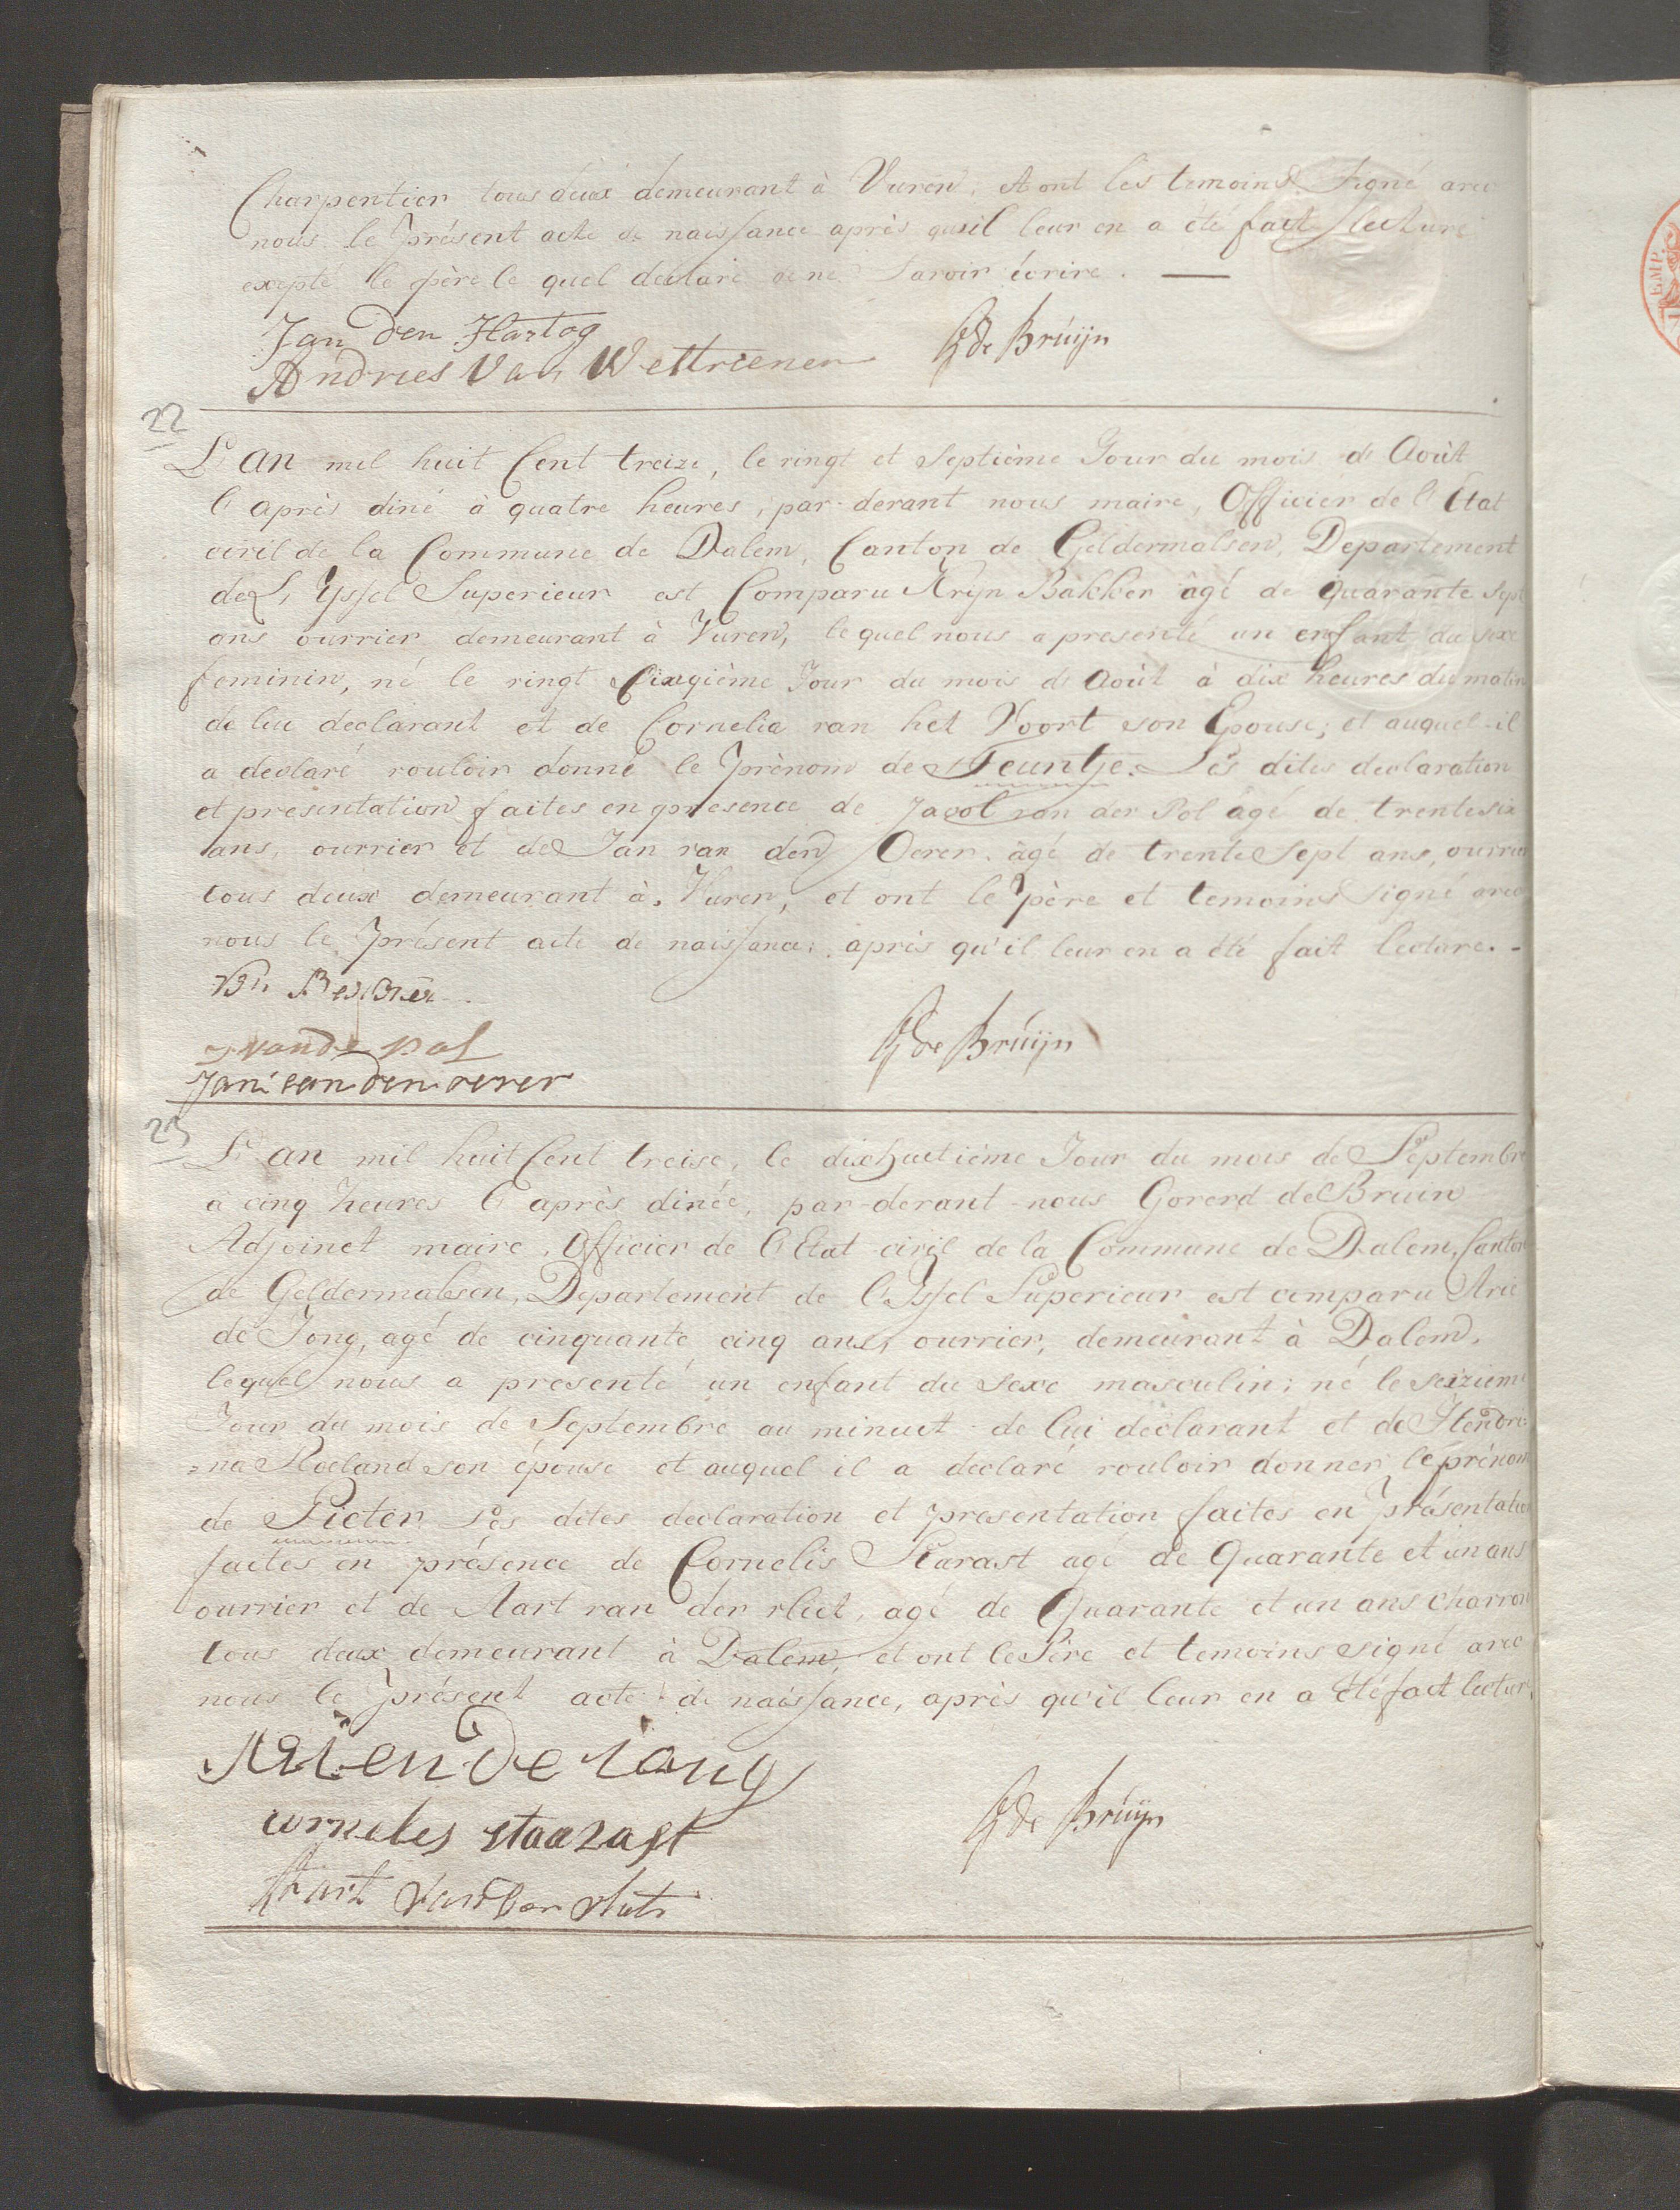 Charpentier tous deux demeurant à Vuren. et ont les temoins Signé avec
nous le présent acte de naissance après qu'il leur en a été fait lecture
exepté le père le quel declare de ne savoir écrire. —
Jan den Hartog
G de Bruijn
Andries Van Wettrienen
22
L'an mil huit Cent treize, le vingt et Septième Jour du mois d'Août
l'après diné à quatre heures, par-devant nous maire, Officier de l'Etat
civil de la Commune de Dalem, Canton de Geldermalsen, Departement
de L'Yssel Superieur est Comparu Kryn Bakker âgé de quarante Sept
ans ouvrier demeurant à Vuren, le quel nous a presenté un enfant du sexe
feminin, né le vingt Jour du mois d'Août à dix heures du matin
de lui declarant et de Cornelia van het Voort son Epouse; et auquel-il
a declaré vouloir donné le prènom de Teuntje. Les dites declaration
et presentation faites en presence de Jacob van der Pol âgé de trentesix
ans, ouvrier et de Jan van den Oever. âgé de trente Sept ans, ouvrier
tous deux demeurant à Vuren, et ont le père et temoins signé avec
nous le présent acte de naissance, après qu'il leur en a été fait lecture. -
J van de pol
G de Bruijn
Jan van den oever
23
L'an mil huit Cent treise, le dixhuitième Jour du mois de Septembre
à cinq heures l'après dinée, par-devant-nous Goverd de Bruin
Adjoinct maire, Officier de l'Etat-civil de la Commune de Dalem, Canton
de Geldermalsen, Departement de l'Issel Superieur est comparu Arie
de Jong, agé de cinquante cinq ans, ouvrier, demeurant à Dalem,
lequel nous a presenté un enfant du sexe masculin; né le seizieme
Jour du mois de Septembre au minuit de lui declarant et de Hendri=
=na Roeland son épouse et auquel il a declaré vouloir donner le prénom
de Pieter Les dites declaration et presentation faites en présentation
faites en présence de Cornelis Starast agé de Quarante et un ans
ouvrier et de Aart van der vliet, agé de Quarante et un ans charron
tous deux demeurant à Dalem, et ont le Père et temoins signé avec
nous le présent acte de naissance, après qu'il leur en a été fait lecture.
Arien de iong
G de Bruijn
corneles staarast
Aart van der vliet